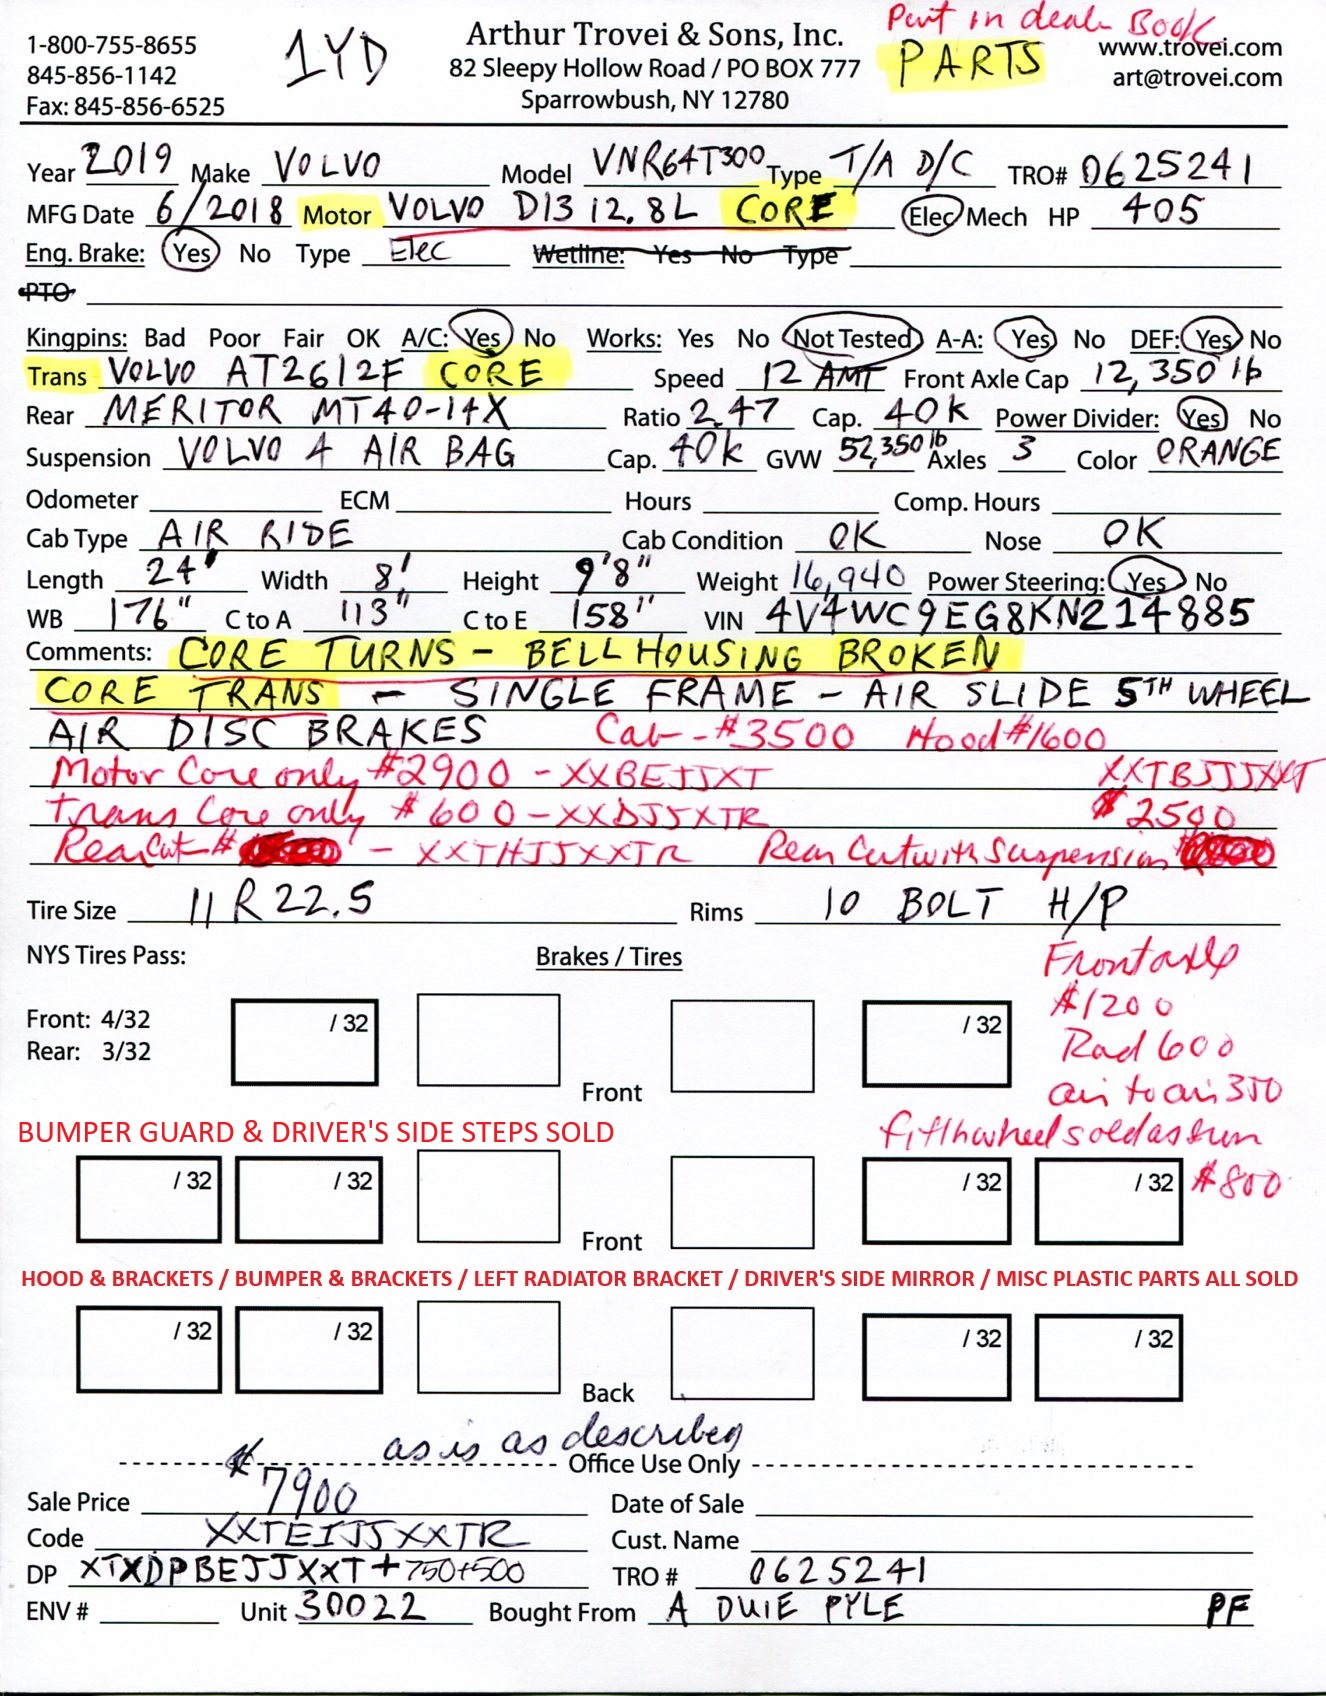 Put in deal Book
1-800-755-8655
845-856-1142
Fax: 845-856-6525
1YD
Arthur Trovei & Sons, Inc.
82 Sleepy Hollow Road / PO BOX 777
Sparrowbush, NY 12780
PARTS
www.trovei.com
art@trovei.com
Year 2019 Make VOLVO Model VNR64T300 Type T/A D/C TRO# 0625241
MFG Date 6/2018 Motor VOLVO D13 12.8L CORE Elec Mech HP 405
Eng. Brake: Yes No Type Elec Wetline: Yes No Type
PTO
Kingpins: Bad Poor Fair OK A/C: Yes No Works: Yes No Not Tested A-A: Yes No DEF: Yes No
Trans VOLVO AT2612F CORE Speed 12 AMT Front Axle Cap 12,350 lb
Rear MERITOR MT40-14X Ratio 2.47 Cap. 40K Power Divider: Yes No
Suspension VOLVO 4 AIR BAG Cap. 40K GVW 52,350 lb Axles 3 Color ORANGE
Odometer ECM Hours Comp. Hours
Cab Type AIR RIDE Cab Condition OK Nose OK
Length 24' Width 8' Height 9'8" Weight 16,940 Power Steering: Yes No
WB 176" C to A 113" C to E 158" VIN 4V4WC9EG8KN214885
Comments: CORE TURNS - BELLHOUSING BROKEN
CORE TRANS - SINGLE FRAME - AIR SLIDE 5TH WHEEL
AIR DISC BRAKES Cab - #3500 Hood #1600
Motor Core only #2900 - XXBEJJXT XXTBJJJXXT
Trans Core only #600 - XXDJJXTR $2500
Rear Cut # - XXTHJJXXTR Rear Cut with Suspension
Tire Size 11R22.5 Rims 10 BOLT H/P
NYS Tires Pass: Brakes / Tires
Front axle
#1200
Front: 4/32 / 32 / 32
Rad 600
Rear: 3/32
air to air 350
Front
BUMPER GUARD & DRIVER'S SIDE STEPS SOLD
fifthwheel sold as run
/ 32 / 32 / 32 / 32 $800
Front
HOOD & BRACKETS / BUMPER & BRACKETS / LEFT RADIATOR BRACKET / DRIVER'S SIDE MIRROR / MISC PLASTIC PARTS ALL SOLD
/ 32 / 32 / 32 / 32
Back
as is as described
Office Use Only
Sale Price $7900 Date of Sale
Code XXTEIJJXXTR Cust. Name
DP XTXDPBEJJXXT+750+500 TRO # 0625241
ENV # Unit 30022 Bought From A DUIE PYLE PF